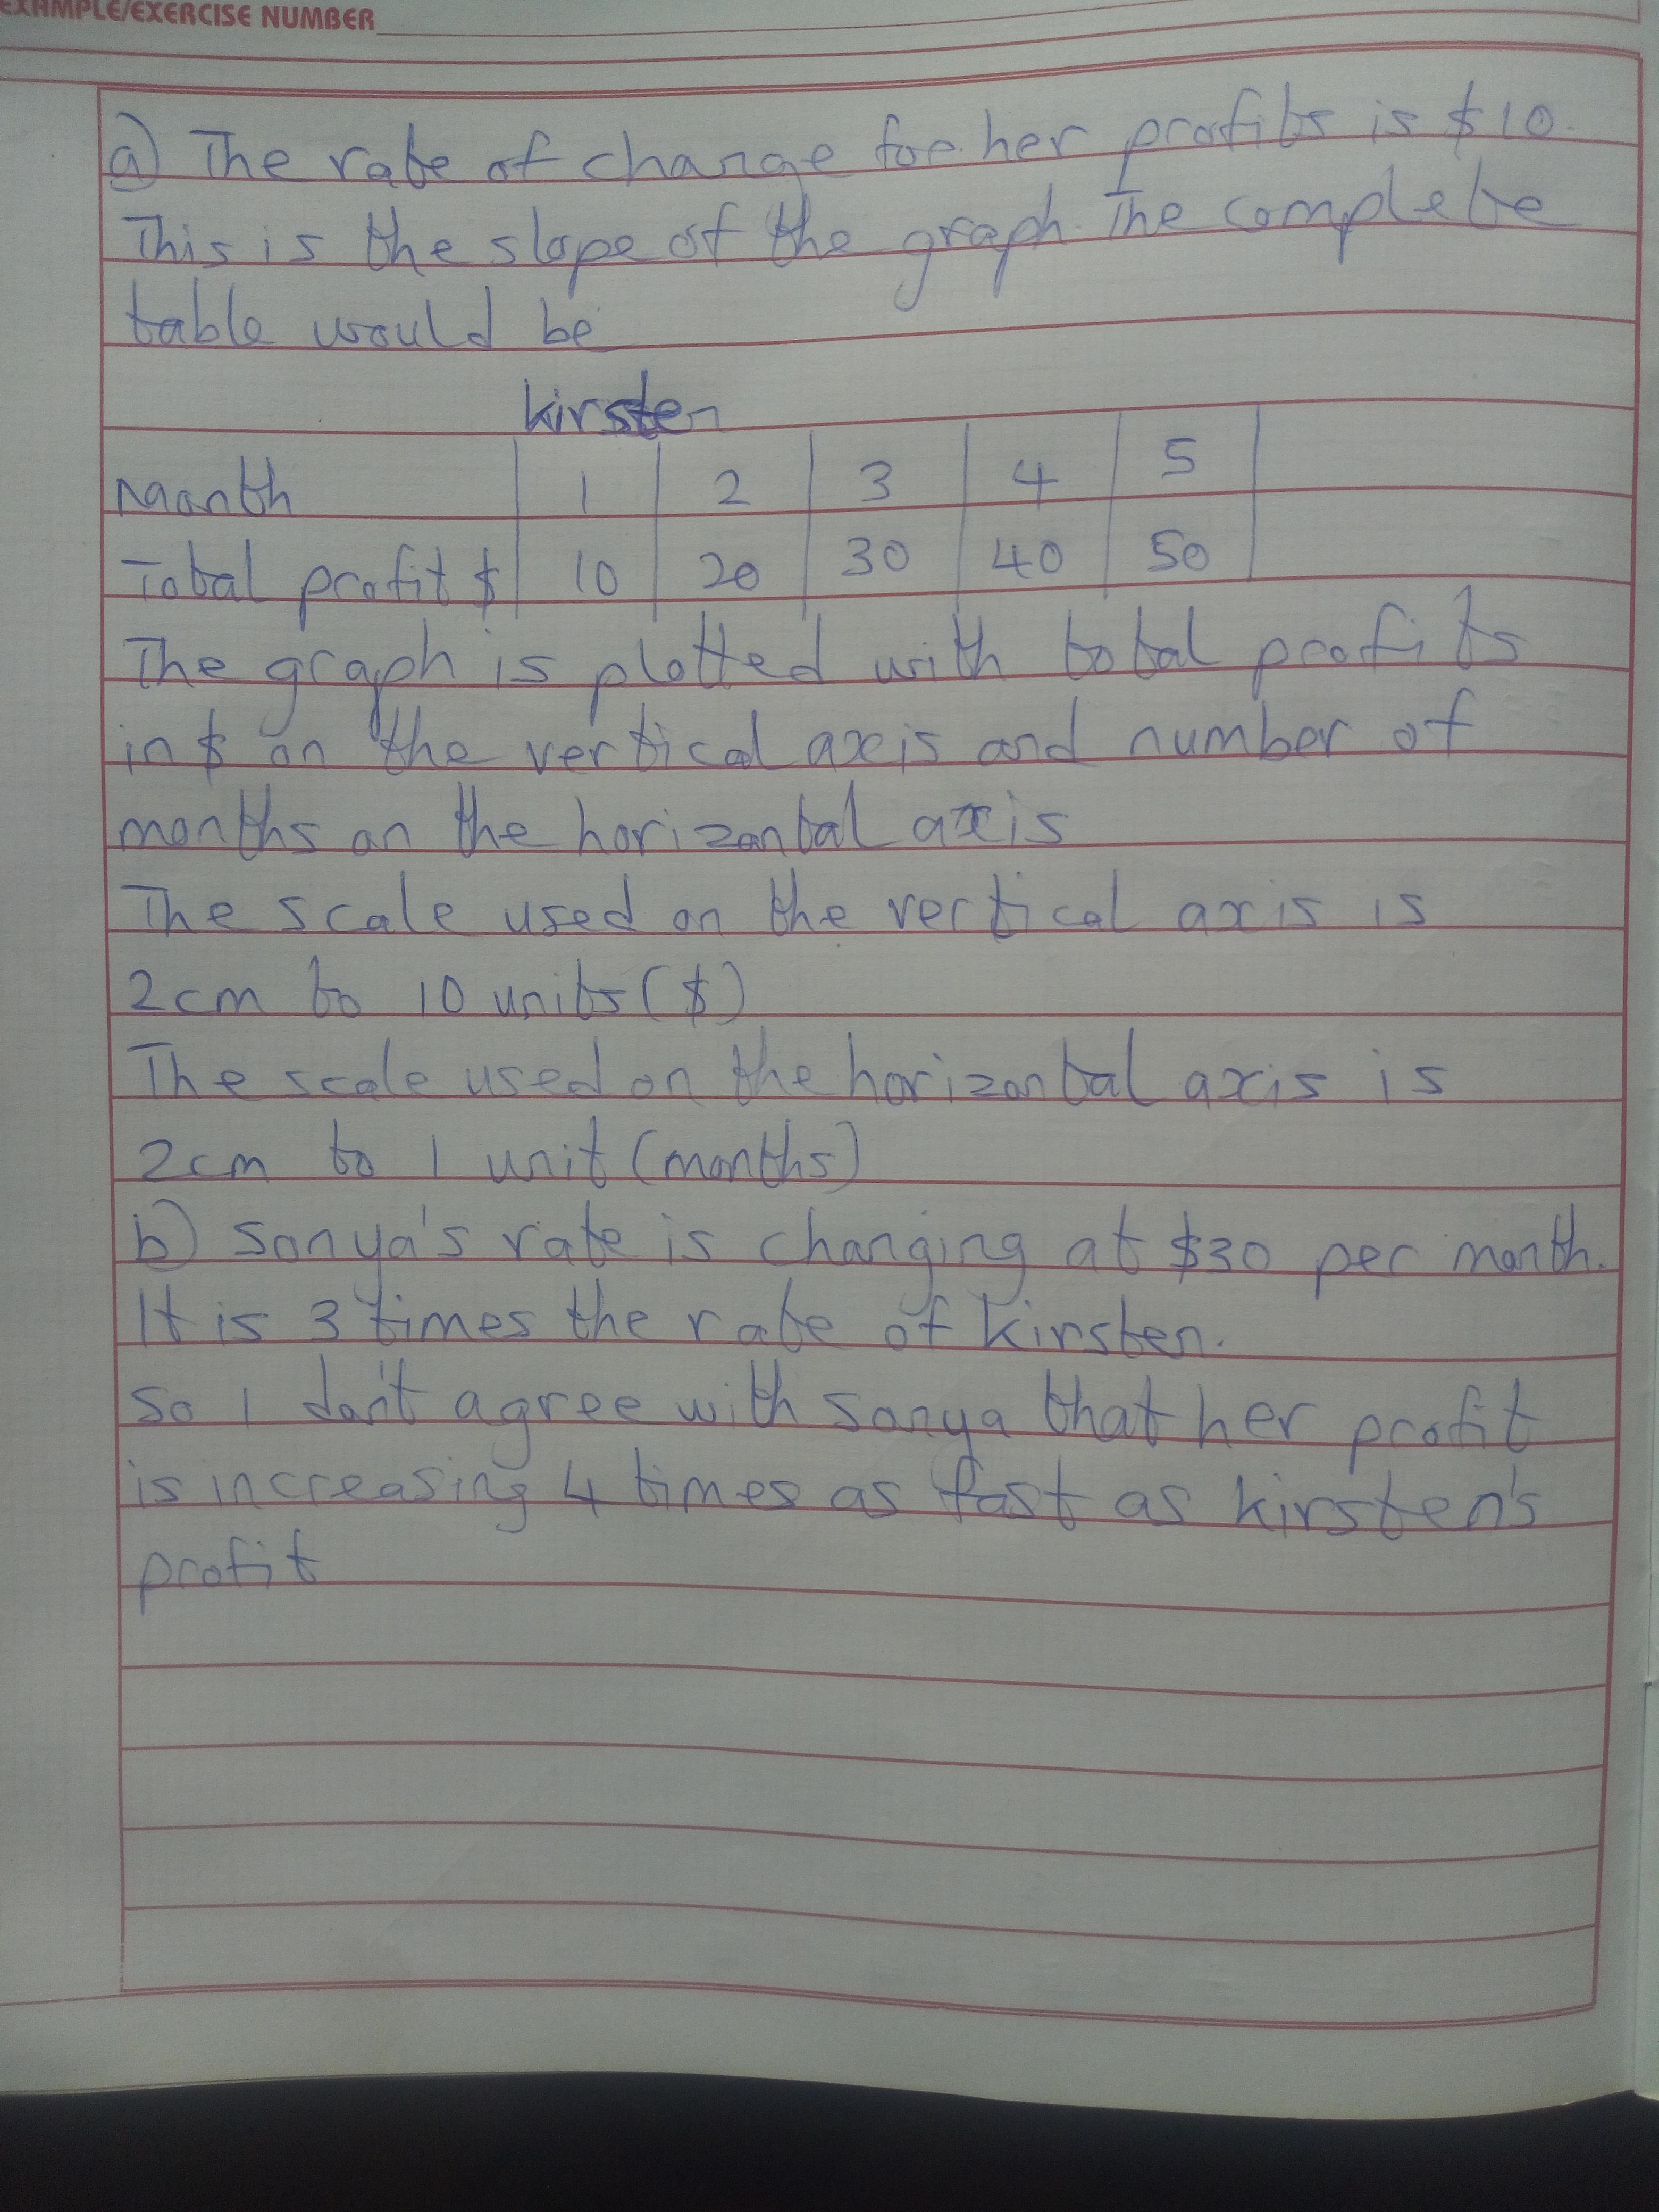 EXAMPLE/EXERCISE NUMBER
a) The rate of change for her profits is $10.
This is the slope of the graph. The complete
table would be
kirsten
Month 1 2 3 4 5
Total profit $ 10 20 30 40 50
The graph is plotted with total profits
in $ on the vertical axis and number of
months on the horizontal axis
The scale used on the vertical axis is
2cm to 10 units ($)
The scale used on the horizontal axis is
2cm to 1 unit (months)
b) Sonya's rate is changing at $30 per month.
It is 3 times the rate of Kirsten.
So I don't agree with Sonya that her profit
is increasing 4 times as fast as kirsten's
profit